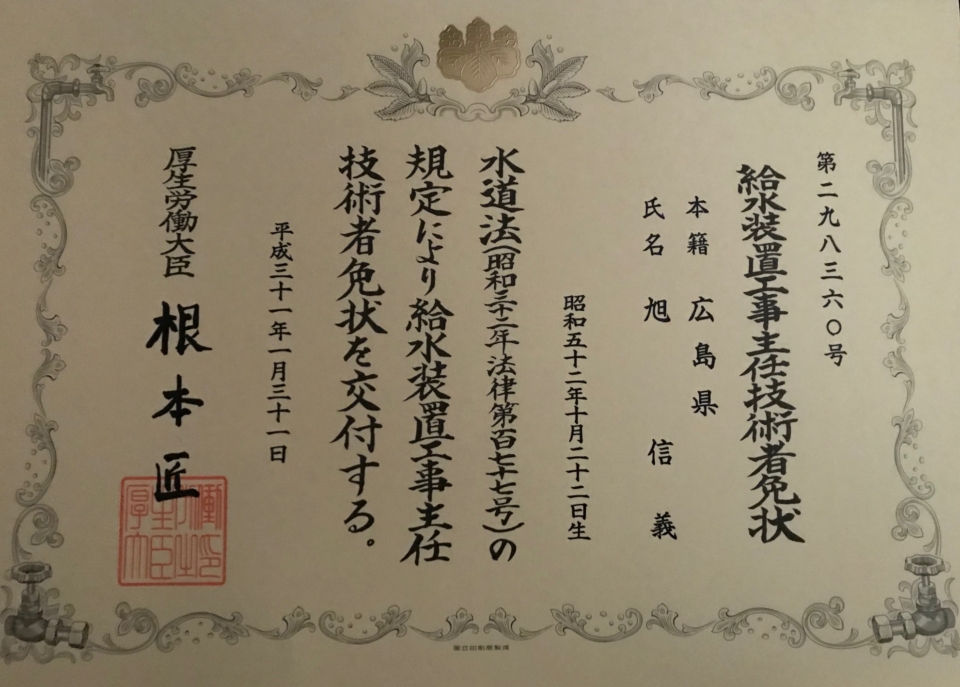 第二九八三六〇号
給水装置工事主任技術者免状
本籍 広島県
氏名 旭 信義
昭和五十二年十月二十二日生
水道法(昭和三十二年法律第百七十七号)の
規定により給水装置工事主任
技術者免状を交付する。
平成三十一年一月三十一日
厚生労働大臣 根本匠